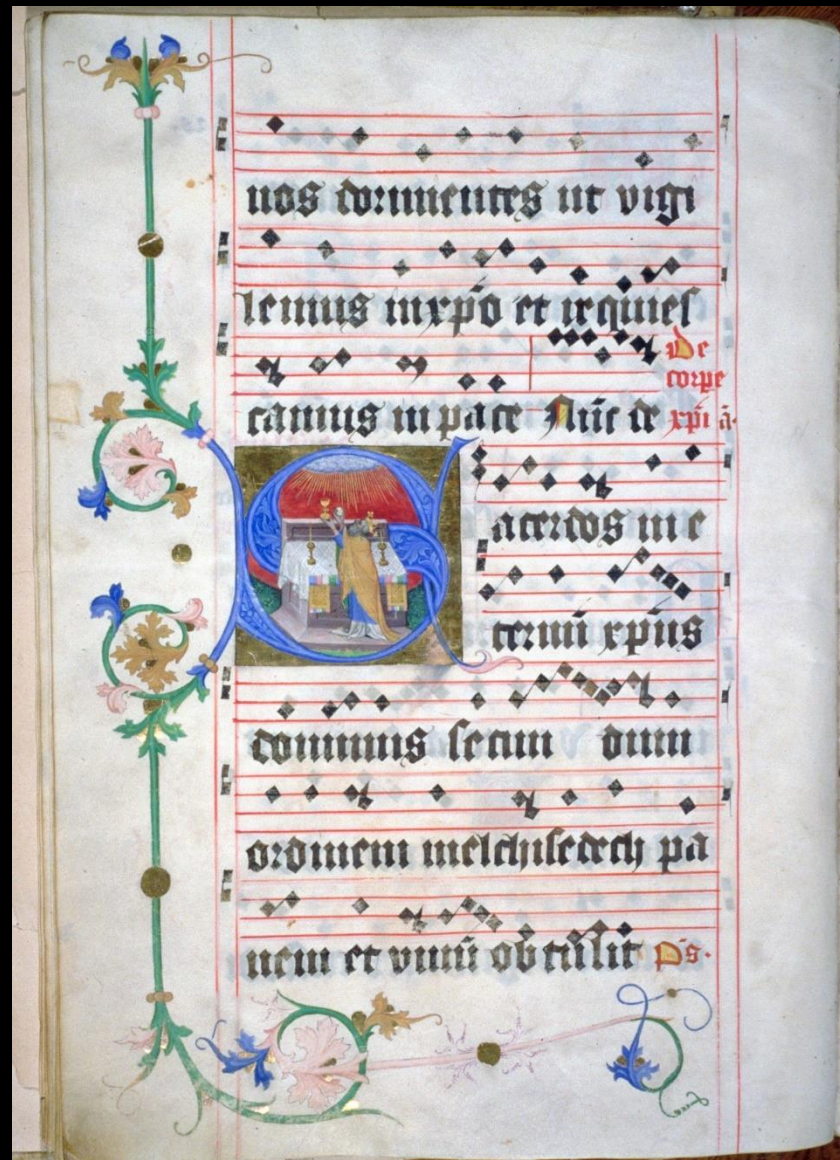 nos dormientes ut vigi
lemus in xp̄o et requies
camus in pace Nūc de
De
corpe
xp̄i ā·
Sacerdos me
ternū xp̄us
dominus secun dum
ordinem melchisedech pa
nem et vinū obtulit p̄s·